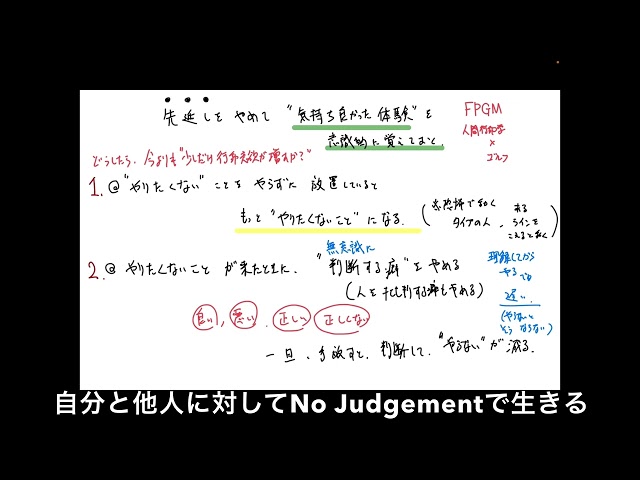 先延しをやめて "気持ち良かった体験" を
意識的に覚えておこと.
FPGM
人間行動学
×
ゴルフ
どうしたら、今よりも "少しだけ行動意欲が増すか?"
1. @ "やりたくない" ことを やらずに 放置していると
もっと "やりたくないこと" になる.
タイプの人
ラインを
こえると動く
2. @ やりたくないこと が来たときに.
無意識に
"判断する癖" をやめる
(人を批判する癖もやめる)
理解してから
やる では
遅い.
(やらないと
そう ならない)
良い, 悪い, 正しい, 正しくない
一旦、手放すと、判断して、"やらない" が 減る.
自分と他人に対してNo Judgementで生きる